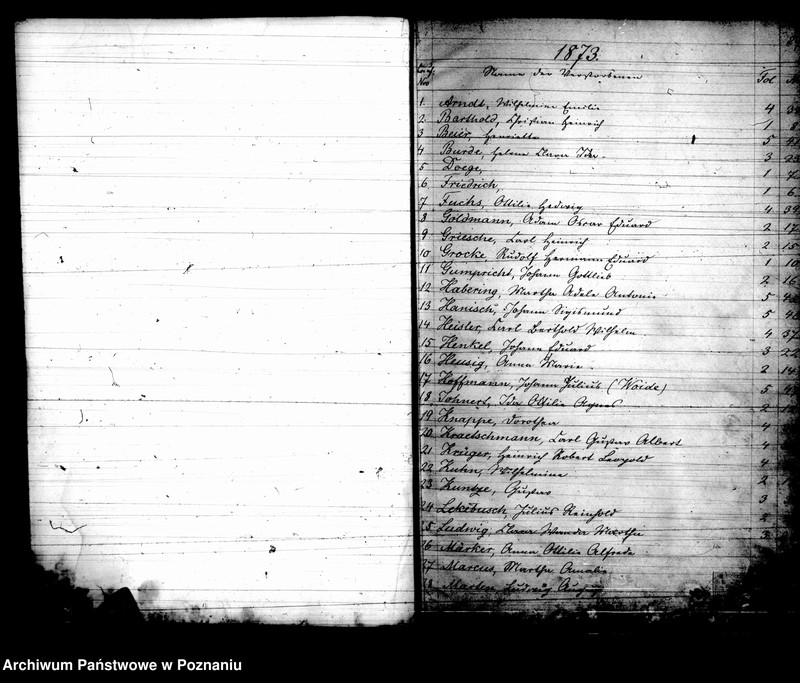 1873.
Laufd. Nro Name der Verstorbenen Fol
1 Arndt, Wilhelmine Emilie 4
2 Barthold, Christian Heinrich 1 8
3 Beier, Henriette 5
4 Burde, Helene Clara Ida 3 23
5 Doege, 1
6 Friedrich, 1 6
7 Fuchs, Ottilie Hedwig 4 39
8 Goldmann, Adam Oscar Eduard 2 17
9 Griesche, Carl Heinrich 2 15
10 Grocke, Rudolf Hermann Eduard 1 10
11 Gumpricht, Johann Gottlieb 2 16
12 Habering, Martha Adele Antonie 5
13 Hanisch, Johann Sigismund 5
14 Heister, Carl Berthold Wilhelm 4 37
15 Henkel, Johann Eduard 3 22
16 Heusig, Anna Marie 2 14
17 Hoffmann, Johann Julius (Woide) 5
18 Johnert, Ida Ottilie Agnes 2
19 Knappe, Dorothea 4
20 Kraetschmann, Carl Gustav Albert 4
21 Krüger, Heinrich Robert Leopold 4
22 Kuhn, Wilhelmine 2
23 Kuntze, Gustav 3
24 Lekibusch, Julius Reinhold 2
25 Ludwig, Clara Wanda Martha 3
26 Märker, Anna Ottilie Alfrede
27 Marcus, Martha Amalie
28 Ludwig
Archiwum Państwowe w Poznaniu